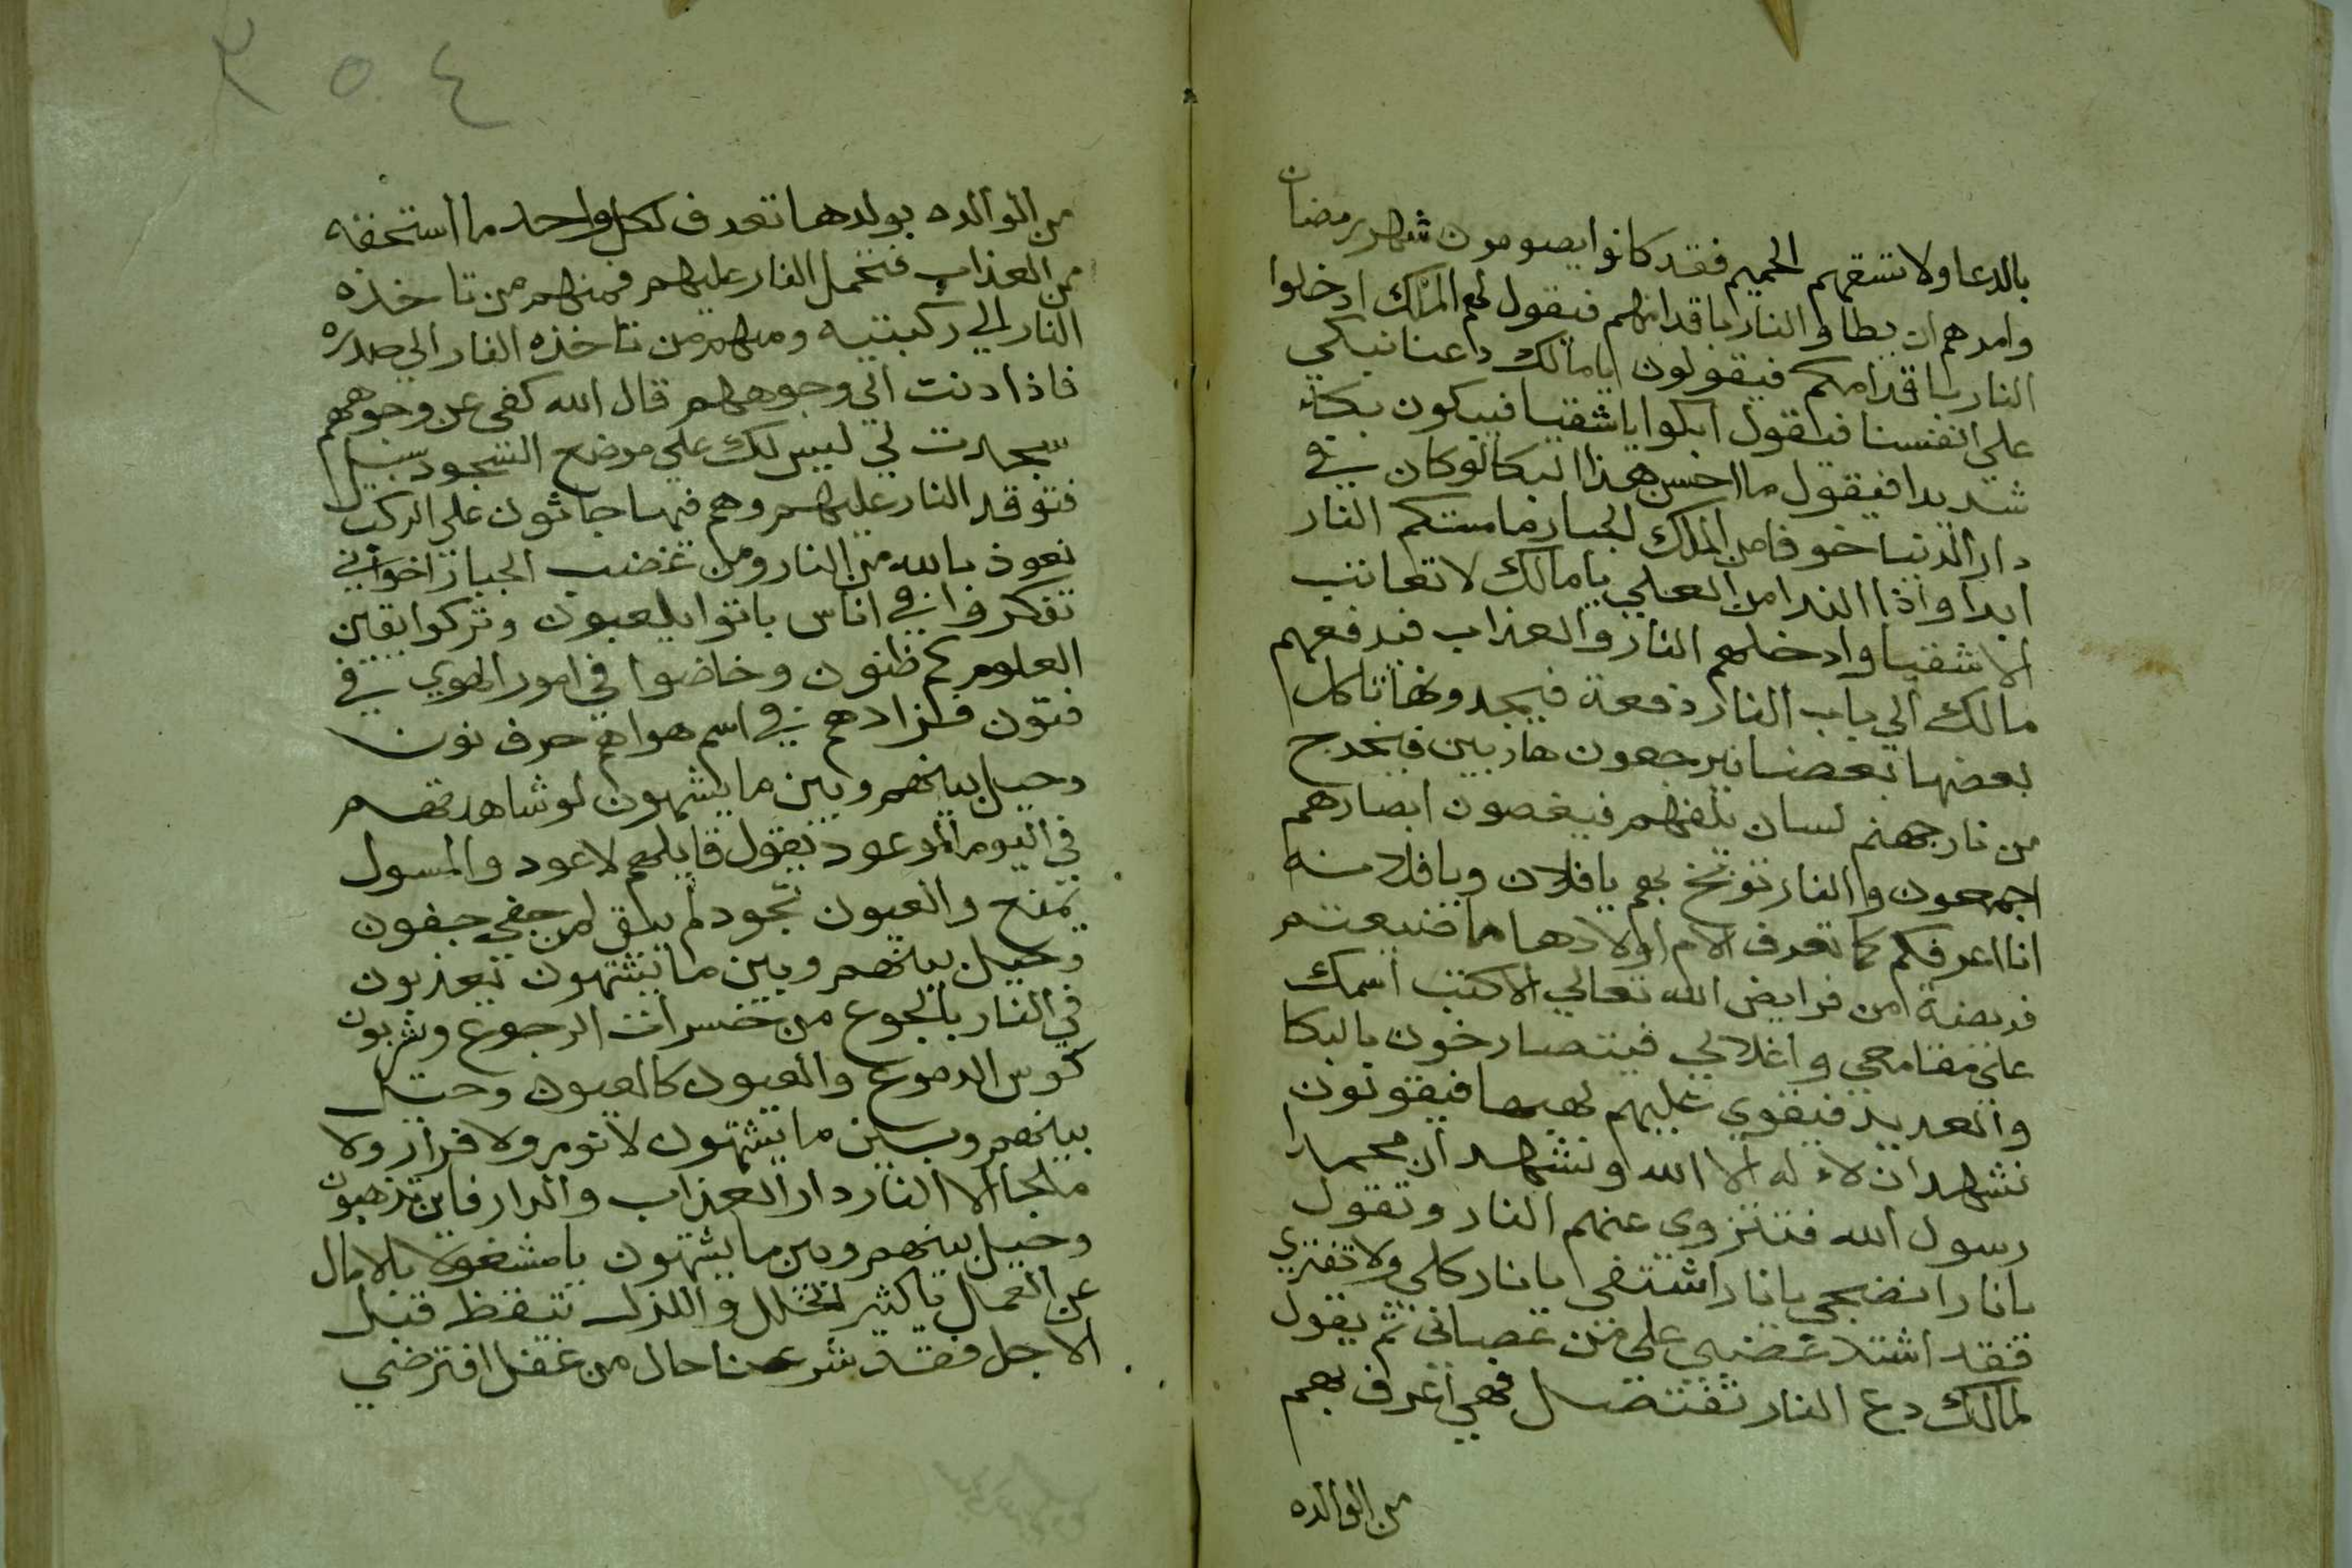 بالدعا ولا تسقهم الحميم فقد كانوا يصومون شهر رمضان
وامرهم ان يطاوا النار باقدامهم فيقول لهم الملك ادخلوا
النار باقدامكم فيقولون يا مالك دعنا نبكي
علي انفسنا فيقول ابكوا يا شقيا فيبكون بكاء
شديدا فيقول ما احسن هذا البكا لو كان في
دار الدنيا خوفا من الملك الجبار ما مستكم النار
ابدا واذا الندا من العلي يا مالك لا تعاتب
الاشقيا وادخلهم النار والعذاب فيدفعهم
مالك الي باب النار دفعة فيجدونها تاكل
بعضها بعضا فيرجعون هاربين فيخرج
من نار جهنم لسان يلفهم فيغضون ابصارهم
اجمعون والنار توبخ بهم يا فلان ويا فلانه
انا اعرفكم كما تعرف الام اولادها ما ضيعتم
فريضة من فرايض الله تعالي الا كتب اسمك
علي مقامعي واغلالي فيتصارخون بالبكا
والعديد فيقوي عليهم لهيبها فيقولون
نشهد ان لا اله الا الله ونشهد ان محمدا
رسول الله فتنزوي عنهم النار وتقول
يا نار انضجي يا نار اشتفي يا نار كلي ولا تفتري
فقد اشتد غضبي علي من عصاني ثم يقول
لمالك دع النار تفتصل فهي اعرف بهم
من الوالده
٣٥٤
من الوالده بولدها تعرف لكل واحد ما استحقه
من العذاب فتحمل النار عليهم فمنهم من تاخذه
النار الي ركبتيه ومنهم من تاخذه النار الي صدره
فاذا دنت الي وجوههم قال الله كفي عن وجوههم
سجدت لي ليس لك علي موضع السجود سبيل
فتوقد النار عليهم وهم فيها جاثون علي الركب
نعوذ بالله من النار ومن غضب الجبار اخواني
تفكروا في اناس باتوا يلعبون وتركوا يقين
العلوم لظنون وخاضوا في امور الهوي في
فنون فلزادهم في اسم هواهم حرف نون
وحيل بينهم وبين ما يشتهون لو شاهدتهم
في اليوم الموعود يقول قايلهم لا عود والمسول
يمنع والعيون تجود لم يبق لمن جفي جفون
وحيل بينهم وبين ما يشتهون يعذبون
في النار بالجوع من خسرات الرجوع ويشربون
كوس الدموع والعيون كالعيون وحيل
بينهم وبين ما يشتهون لا نوم ولا قرار ولا
ملجا الا النار دار العذاب والدار فاين تذهبون
وحيل بينهم وبين ما يشتهون يا مشغولا بالامال
عن العمل يا كثير الخلل والزلل تيقظ قبل
الاجل فقد شرعنا حال من غفل افترضي